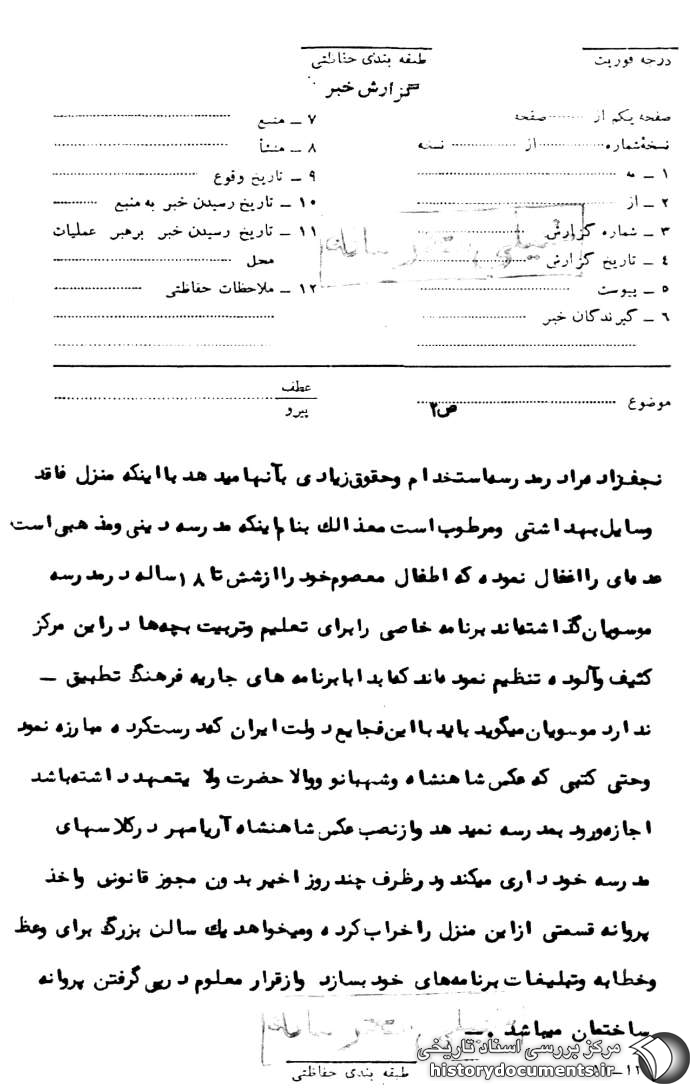 درجه فوریت
طبقه بندی حفاظتی
گزارش خبر
صفحه یکم از ........ صفحه
نسخه شماره ............ از ............ نسخه
۱ ــ به
۲ ــ از
۳ ــ شماره گزارش
٤ ــ تاریخ گزارش
۵ ــ پیوست
۶ ــ گیرندگان خبر
۷ ــ منبع
۸ ــ منشأ
۹ ــ تاریخ وقوع
۱۰ ــ تاریخ رسیدن خبر به منبع
۱۱ ــ تاریخ رسیدن خبر برهبر عملیات
محل
۱۲ ــ ملاحظات حفاظتی
موضوع
ص۲
عطف
پیرو
نجفزاد مراد رمدرسه استخدام وحقوق زیادی بآنها میدهد با اینکه منزل فاقد
وسایل بهداشتی ومرطوب است معذالك بنام اینکه مدرسه دینی ومذهبی است
عده‌ای را اغفال نموده که اطفال معصوم خود را ازشش تا ۱۸ ساله درمدرسه
موسویان گذاشته‌اند برنامه خاصی را برای تعلیم وتربیت بچه‌ها دراین مرکز
کثیف وآلوده تنظیم نموده‌اند که ابدا با برنامه های جاریه فرهنگ تطبیق ــ
ندارد موسویان میگوید باید با این فجایع دولت ایران که درست کرده مبارزه نمود
وحتی کتبی که عکس شاهنشاه وشهبانو ووالاحضرت ولایتعهد داشته باشد
اجازه ورود بمدرسه نمیدهد وازنصب عکس شاهنشاه آریامهر درکلاسهای
مدرسه خودداری میکند ودرظرف چند روز اخیر بدون مجوز قانونی واخذ
پروانه قسمتی ازاین منزل را خراب کرده ومیخواهد یك سالن بزرگ برای وعظ
وخطابه وتبلیغات برنامه‌های خود بسازد وازقرار معلوم درپی گرفتن پروانه
ساختمان میباشد . ــ
طبقه بندی حفاظتی
مرکز بررسی اسناد تاریخی
historydocuments.ir